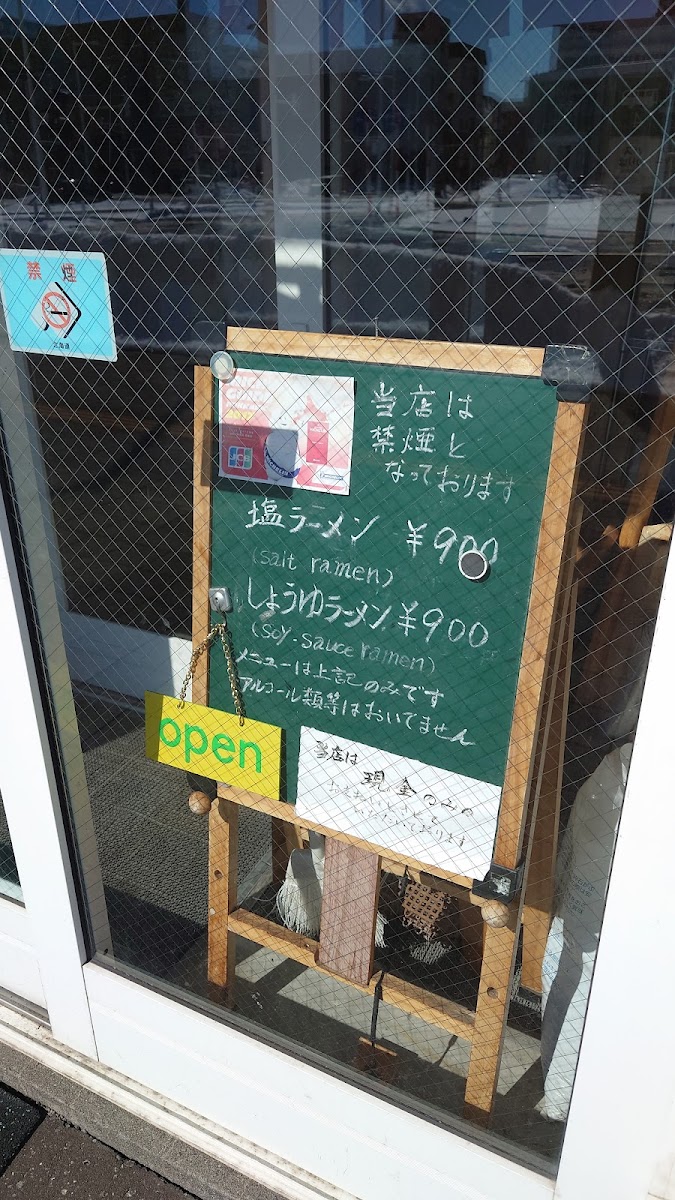 禁煙
北海道
JCB
当店は
禁煙と
なっております
塩ラーメン ¥900
(salt ramen)
しょうゆラーメン ¥900
(soy-sauce ramen)
メニューは上記のみです
アルコール類等はおいてません
open
当店は
現金のみの
お支払いとさせて
いただいております